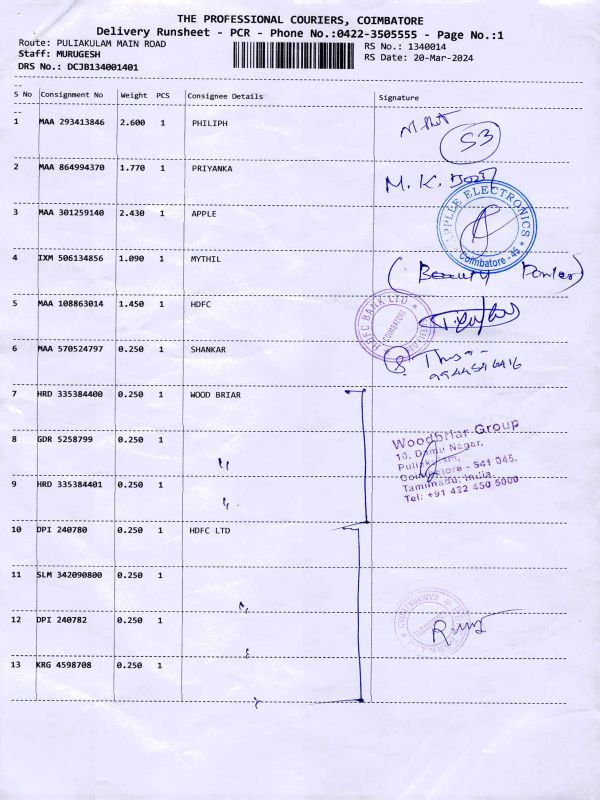 THE PROFESSIONAL COURIERS, COIMBATORE
Delivery Runsheet - PCR - Phone No.:0422-3505555 - Page No.:1
Route: PULIAKULAM MAIN ROAD
RS No.: 1340014
Staff: MURUGESH
RS Date: 20-Mar-2024
DRS No.: DCJB134001401
S No Consignment No Weight PCS Consignee Details Signature
1 MAA 293413846 2.600 1 PHILIPH
53
2 MAA 864994370 1.770 1 PRIYANKA M. K.
3 MAA 301259140 2.430 1 APPLE
APPLE ELECTRONICS
Coimbatore - 45
4 IXM 506134856 1.090 1 MYTHIL
(Beauty Ponler)
5 MAA 108863014 1.450 1 HDFC
HDFC BANK LTD
COIMBATORE
6 MAA 570524797 0.250 1 SHANKAR
7 HRD 335384400 0.250 1 WOOD BRIAR
Woodbriar Group
10, Damu Nagar,
8 GDR 5258799 0.250 1 〃
Coimbatore - 641 045,
Tamilnadu, India.
9 HRD 335384401 0.250 1 〃
Tel: +91 422 450 5000
10 DPI 240780 0.250 1 HDFC LTD
11 SLM 342090800 0.250 1 〃
12 DPI 240782 0.250 1 〃
13 KRG 4598708 0.250 1 〃